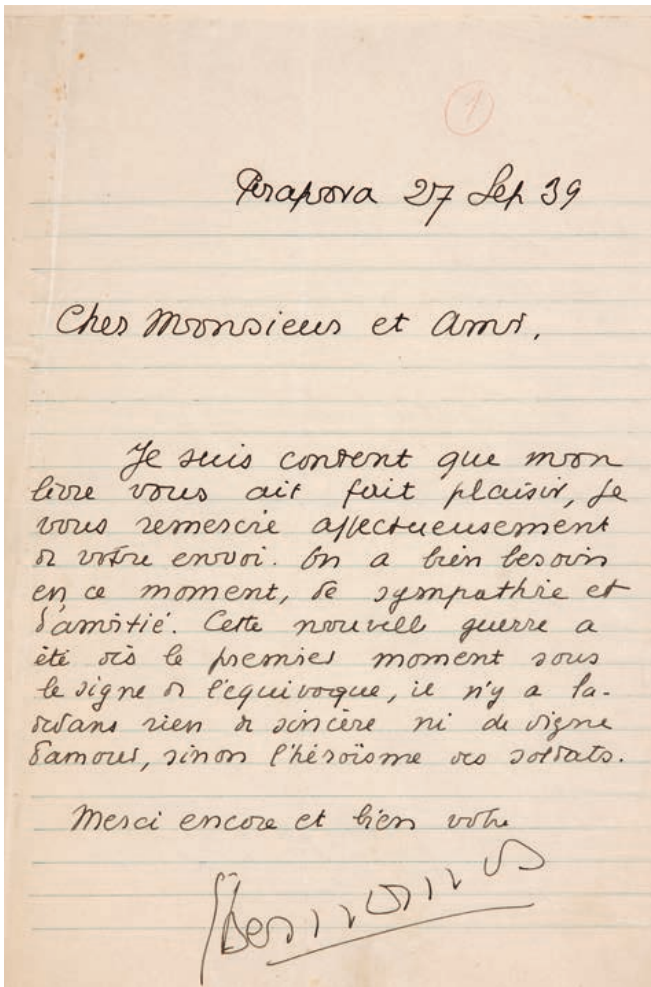 1
Pirapora 27 Sep 39
Cher Monsieur et Ami,
Je suis content que mon
livre vous ait fait plaisir, je
vous remercie affectueusement
de votre envoi. On a bien besoin
en ce moment, de sympathie et
d'amitié. Cette nouvelle guerre a
été dès le premier moment sous
le signe de l'équivoque, il n'y a la-
dedans rien de sincère ni de digne
d'amour, sinon l'héroïsme des soldats.
Merci encore et bien votre
GBernanos